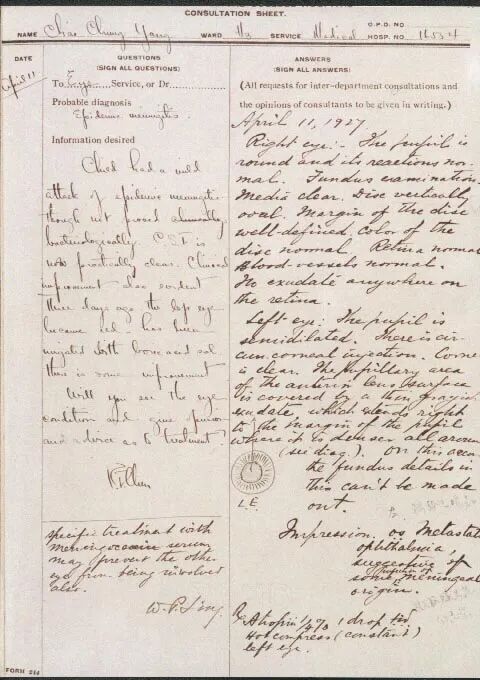 CONSULTATION SHEET.
O.P.D. NO
NAME Chiao Chung Yang WARD SERVICE Medical HOSP. NO.
DATE
QUESTIONS
(SIGN ALL QUESTIONS)
April 11
To Eye Service, or Dr.
Probable diagnosis
Epidemic meningitis.
Information desired
Child had a mild
attack of epidemic meningitis
though not proved
bacteriologically. C.S.F. is
now practically clear. Clinical
improvement also evident
three days ago the left eye
became red - has been
irrigated with boric acid sol.
there is some improvement
Will you see the eye
condition and give opinion
and advice as to treatment?
specific treatment with
serum
may prevent the other
eye from being involved
also.
W. P. Ling.
FORM
ANSWERS
(SIGN ALL ANSWERS)
(All requests for inter-department consultations and
the opinions of consultants to be given in writing.)
April 11, 1927
Right eye:- The pupil is
round and its reactions nor-
mal. Fundus examination.
Media clear. Disc vertically
oval. Margin of the disc
well-defined. Color of the
disc normal. Retina normal
Blood-vessels normal.
No exudate anywhere on
the retina.
Left eye: The pupil is
semidilated. There is cir-
cumcorneal injection. Cornea
is clear. The pupillary area
of the anterior lens surface
is covered by a thin grayish
exudate, which extends right
to the margin of the pupil
where it is denser all around
(see diag.). On this
the fundus details in
this can't be made
out.
L.E.
Impression. os Metastat
ophthalmia,
suggestive of
some meningeal
origin.
Rx Atropin 1 drop tid
Hot compress (constant)
left eye.